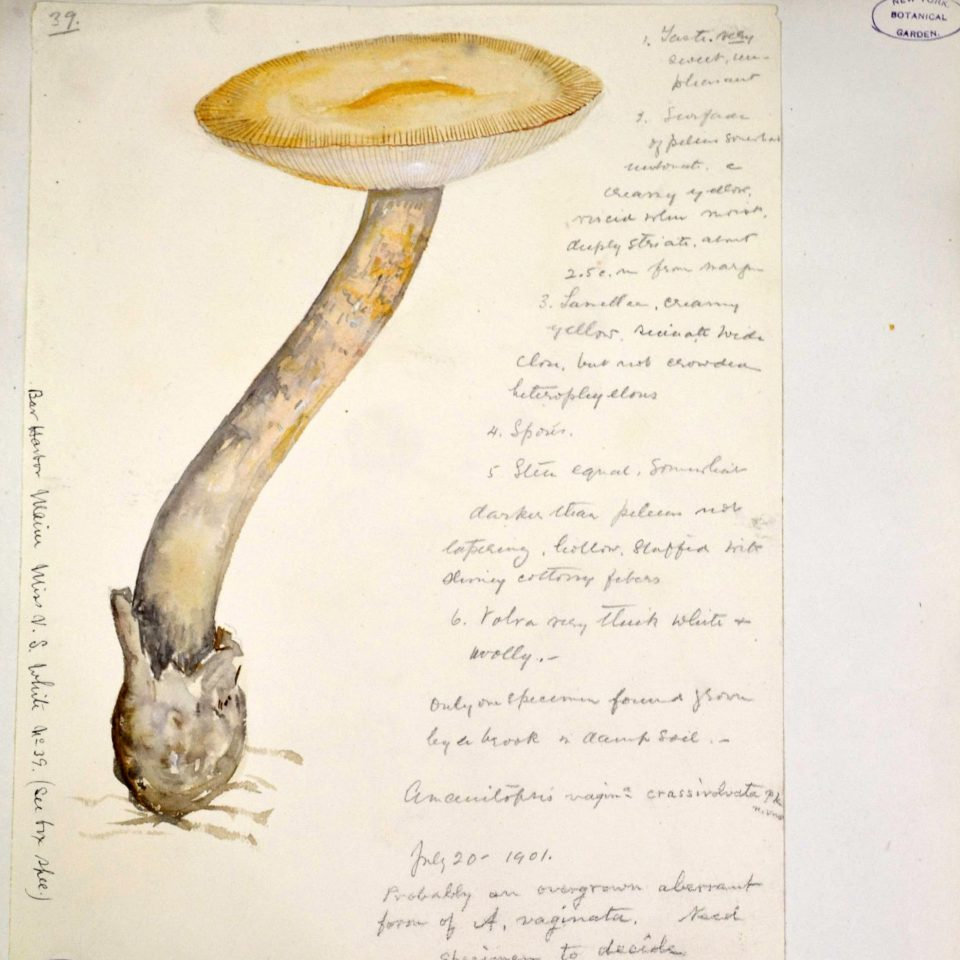 39.
NEW YORK
BOTANICAL
GARDEN.
1. Taste very
sweet, un-
pleasant
2. Surface
of pileus somewhat
umbonate. a
creamy yellow,
viscid when moist,
deeply striate, about
2.5 c. m from margin
3. Lamellae, creamy
yellow, wide
close, but not crowded
heterophyllous
4. Spores.
5 Stem equal, somewhat
darker than pileus not
tapering, hollow, stuffed with
slimey cottony fibers
6. Volva very thick white &
woolly.-
Only one specimen found grown
by a brook in damp soil.-
Amanitopsis vagina crassivolvata Pk
July 20- 1901.
Probably an overgrown aberrant
form of A. vaginata. Need
specimen to decide
Bar Harbor Maine Miss V. S. White No 39. (See box spec.)